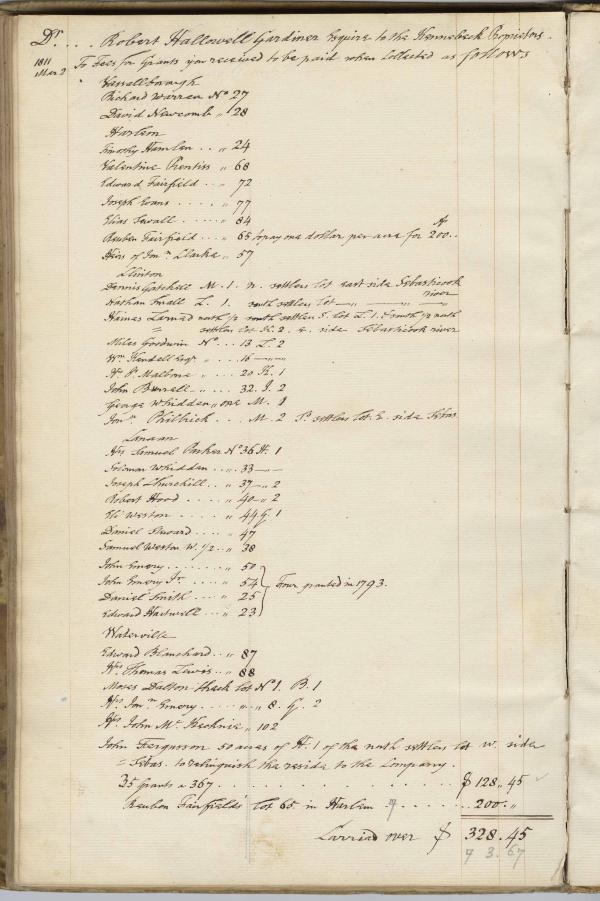 Dr. . . . Robert Hallowell Gardiner Esquire to the Kennebeck Proprietors.
1811
Mar 2 To Fees for Grants you received to be paid when Collected as follows
Vassalborough
Richard Warren No 27
David Newcomb " 28
Harlem
Timothy Hamlen . . " 24
Valentine Prentiss " 68
Edward Fairfield . . " 72
Joseph Evans . . . . " 77
Elias Sewall . . . . " 84
Reuben Fairfield . . . " 65 to pay one dollar per acre for 200 . .
Heirs of Jonn Clarke " 57
Clinton
Dennis Getchell M. 1. n. settlers lot east side Sebasticook
river
Nathan Small L. 1. south settlers lot — " — " — "
Haines Larned north 1/2 south settlers lot L. 1. & south 1/2 north
= settlers lot K. 2. e. side Sebasticook river
Miles Goodwin No . . . 13 L. 2
Wm Kendell Esqr " . . . 16 — " — "
H. P. Malbone " . . . . 20 K. 1
John Burrell . . " . . . 32. J. 2
George Whidden " one M. 1
Jonn Philbrick . . . M. 2 S. settlers lot E. side Sebas.
Canaan
Hrs Samuel Parker No 36 H. 1
Soloman Whidden . . " . 33 — " —
Joseph Churchill . . " 37 — " 2
Robert Hood . . . . " 40 — " 2
Eli Weston . . . . . " 44 G. 1
Daniel Steward . . . . " 47
Samuel Weston W. 1/2 . . " 38
John Emery . . . . . . " 50
John Emery Jr . . . . " 54 Four granted in 1793.
Daniel Smith . . . . " 25
Edward Hartwell . . . " 23
Waterville
Edward Blanchard . . " 87
Hrs Thomas Lewis . . " 88
Moses Dalton back lot No 1. B. 1
Hrs Jonn Emery . . . . " " 8. G. 2
Hrs John Mc Kechnie " 102
John Fergusson 50 acres of H. 1 of the north settlers lot w. side
= Sebas. to relinquish the reside to the Company.
35 Grants a 367 . . . . . . . . . . $ 128 " 45
Reuben Fairfields Lot 65 in Harlem . . . . . . . 200 "
Carried over $ 328 . 45
3. 67